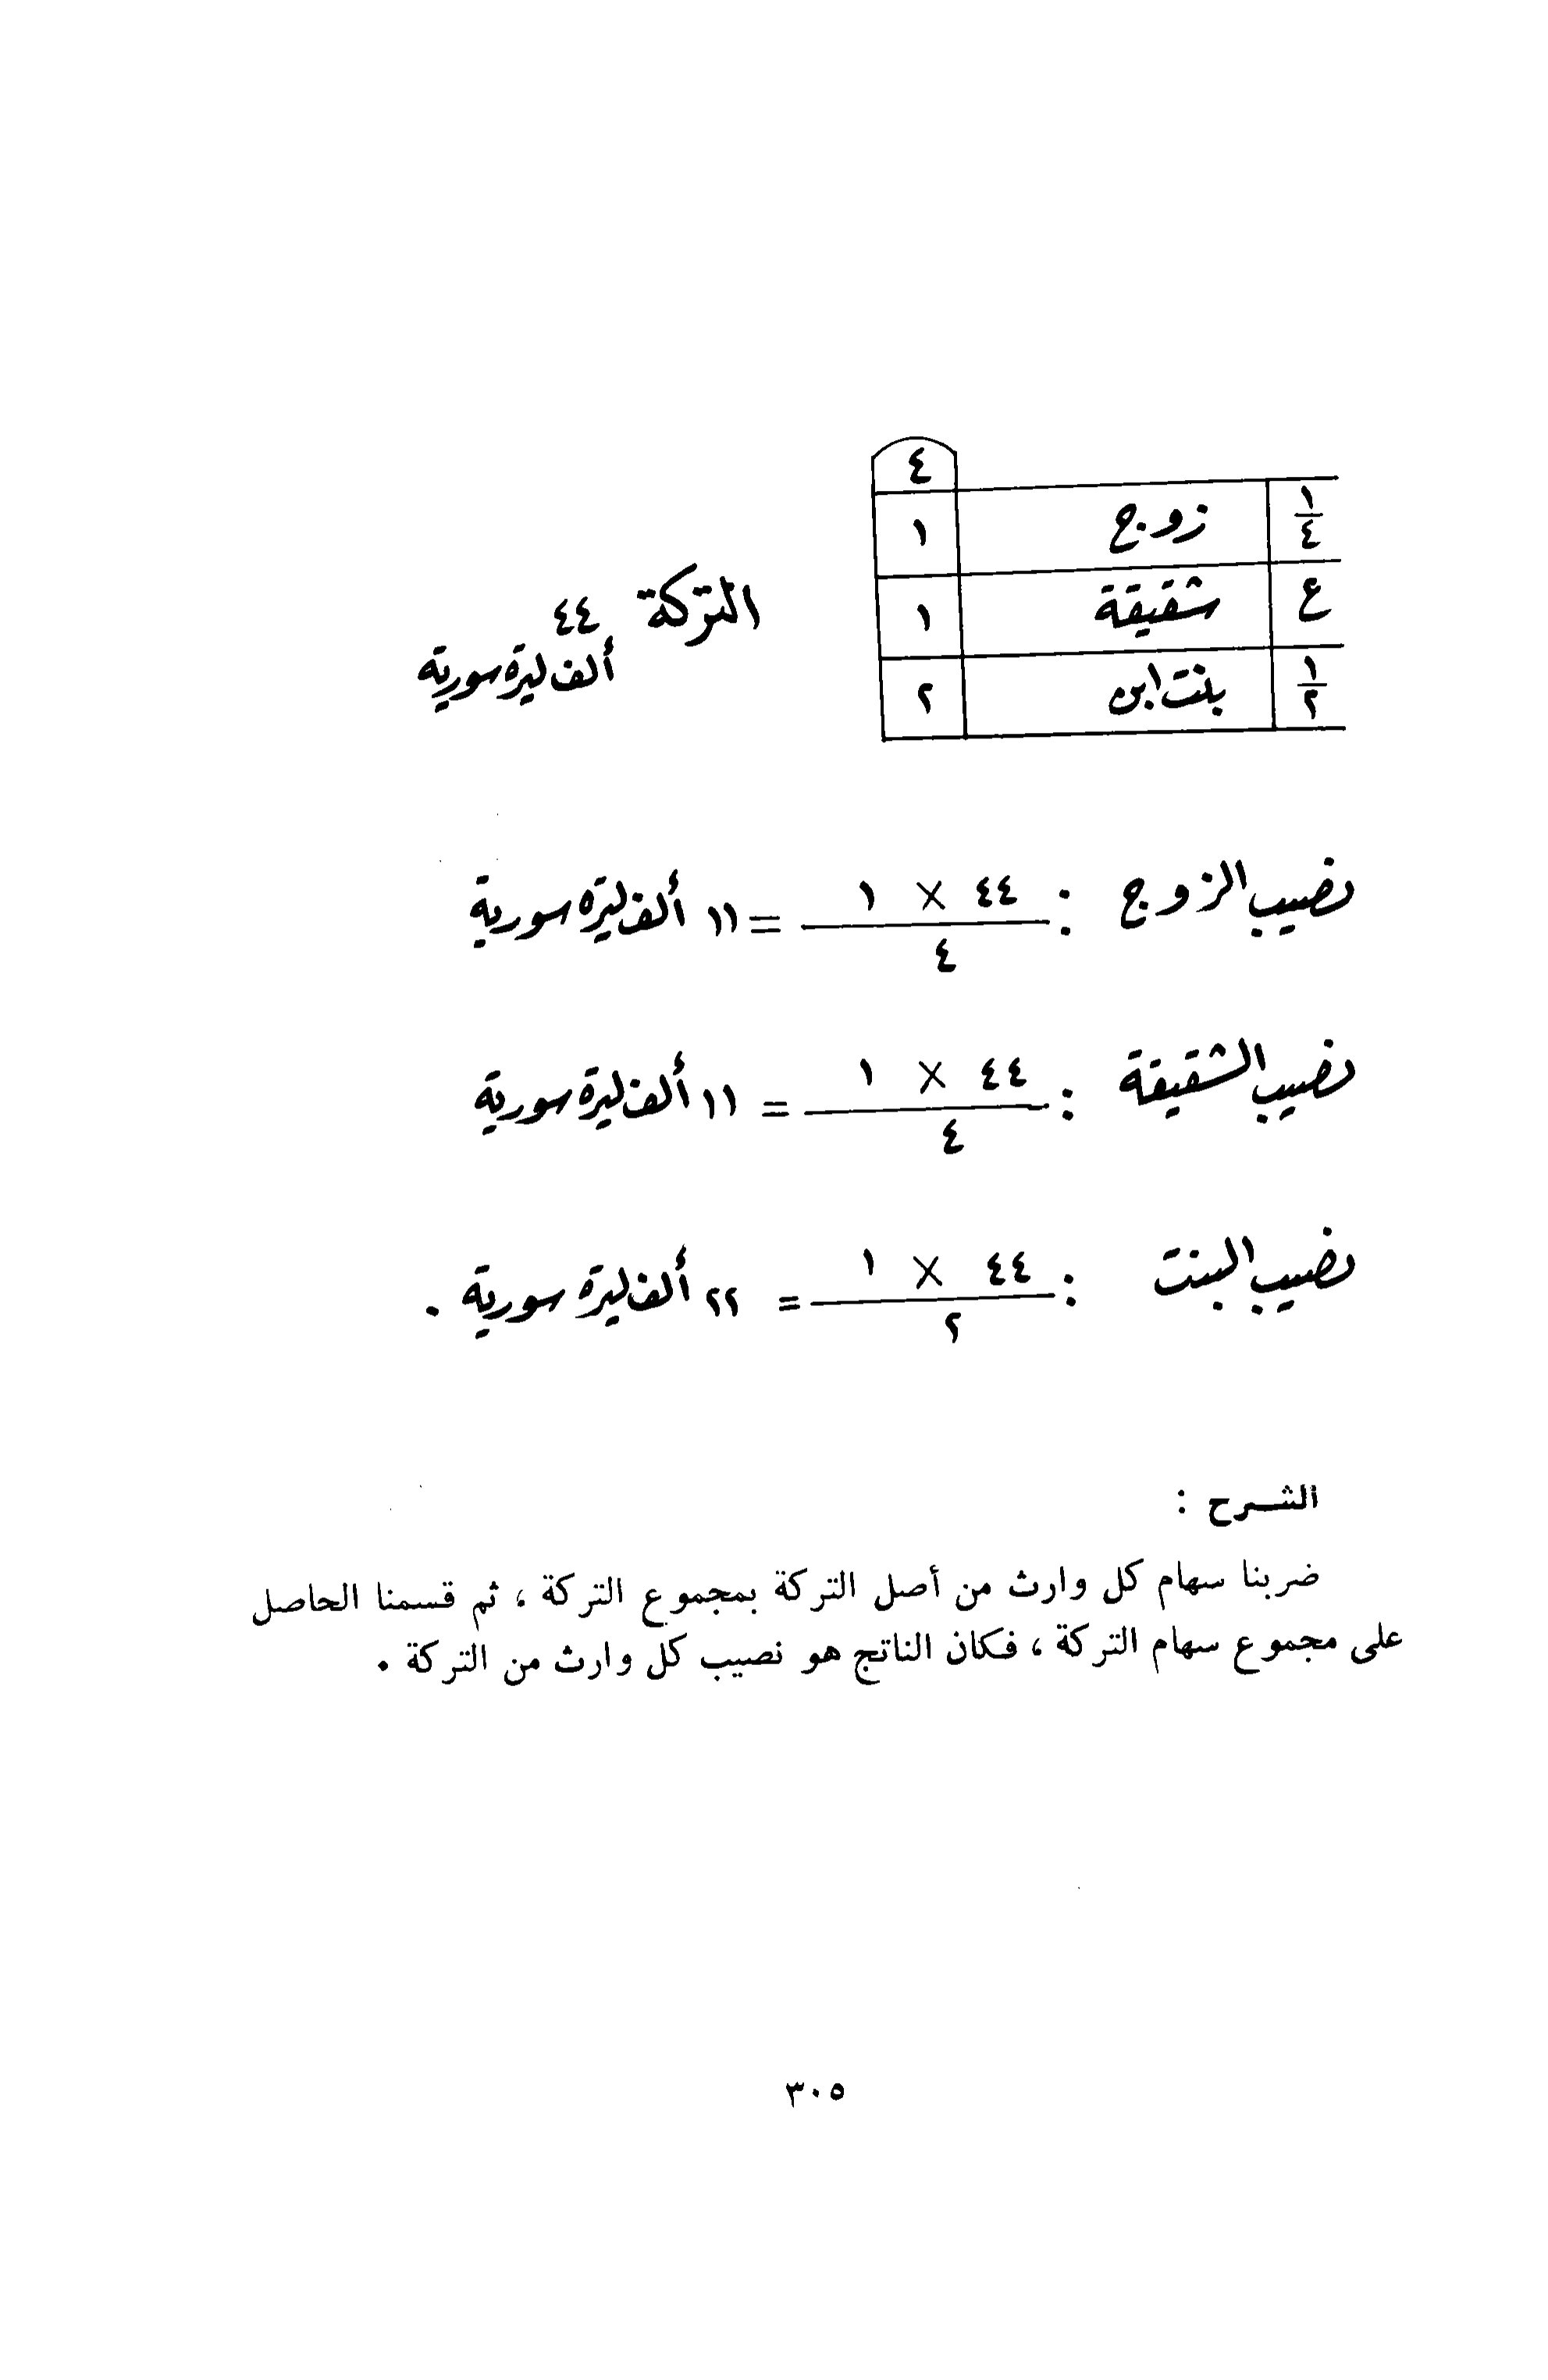 ٤
١/٤ زوج ١
ع شقيقة ١
١/٢ بنت ابن ٢
التركة ٤٤
ألف ليرة سورية
نصيب الزوج : ٤٤ × ١ / ٤ = ١١ ألف ليرة سورية
نصيب الشقيقة : ٤٤ × ١ / ٤ = ١١ ألف ليرة سورية
نصيب البنت : ٤٤ × ١ / ٢ = ٢٢ ألف ليرة سورية .
الشرح :
ضربنا سهام كل وارث من أصل التركة بمجموع التركة ، ثم قسمنا الحاصل
على مجموع سهام التركة ، فكان الناتج هو نصيب كل وارث من التركة .
٣٠٥